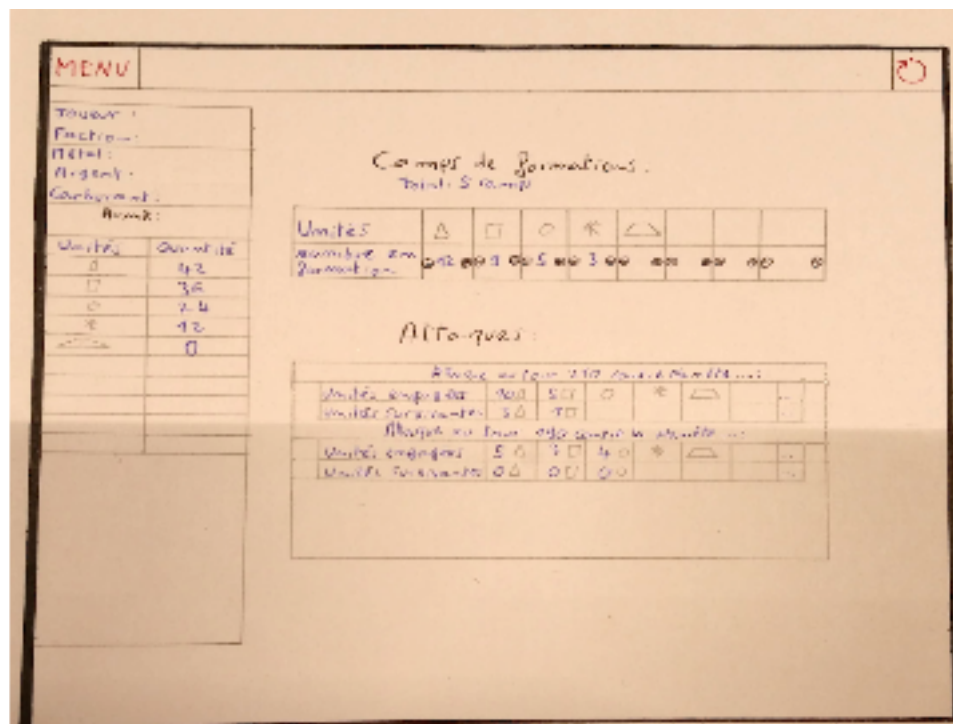 MENU
Joueur :
Faction :
Métal :
Argent :
Carburant :
Armée :
Unités Quantité
42
36
24
12
0
Camps de formations.
Total : 5 camps
Unités
nombre en formation 12 9 5 3
Attaques :
Attaque au tour contre Planète ... :
Unités engagées 10 5
Unités survivantes 5 1
Attaque au tour contre la planète ... :
Unités engagées 5 3 4
Unités survivantes 0 0 0